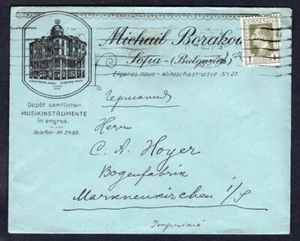 Michail Bozako
Sofia - (Bulgarien)
Eigenes Haus - Witoschastrasse № 21.
Depôt sämtlicher
MUSIKINSTRUMENTE
in engros.
Telefon - № 2490.
Германия
Herrn
C. A. Hoyer
Bogenfabrik
Markneukirchen i/S
Imprimé